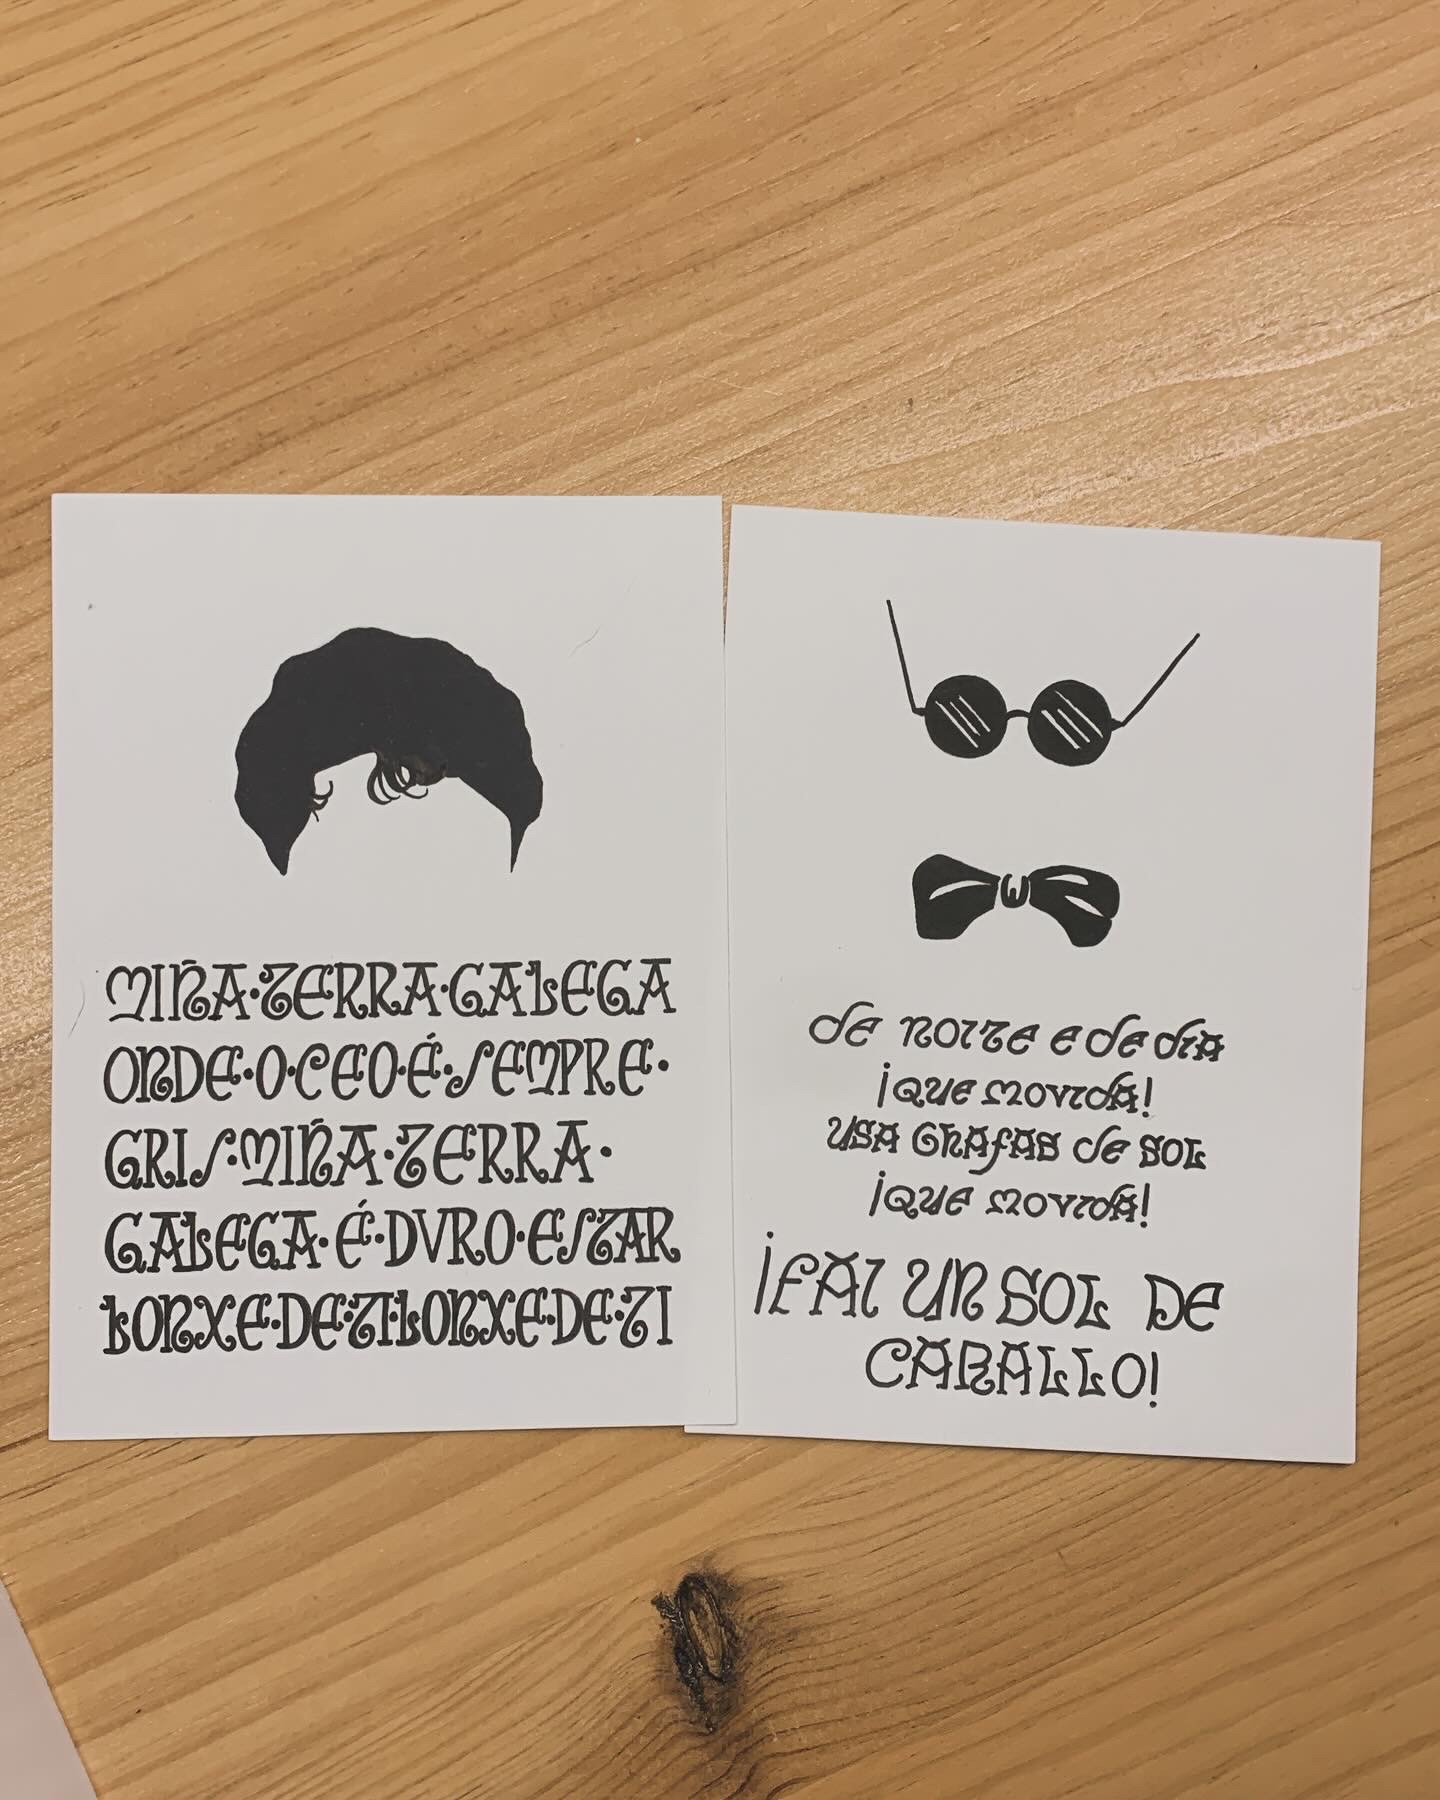 MIÑA·TERRA·GALEGA
ONDE·O·CEO·É·SEMPRE·
GRIS·MIÑA·TERRA·
GALEGA·É·DVRO·ESTAR
LONXE·DE·TI·LONXE·DE·TI
de noite e de dia
¡que movida!
usa ghafas de sol
¡que movida!
¡FAI UN SOL DE
CARALLO!